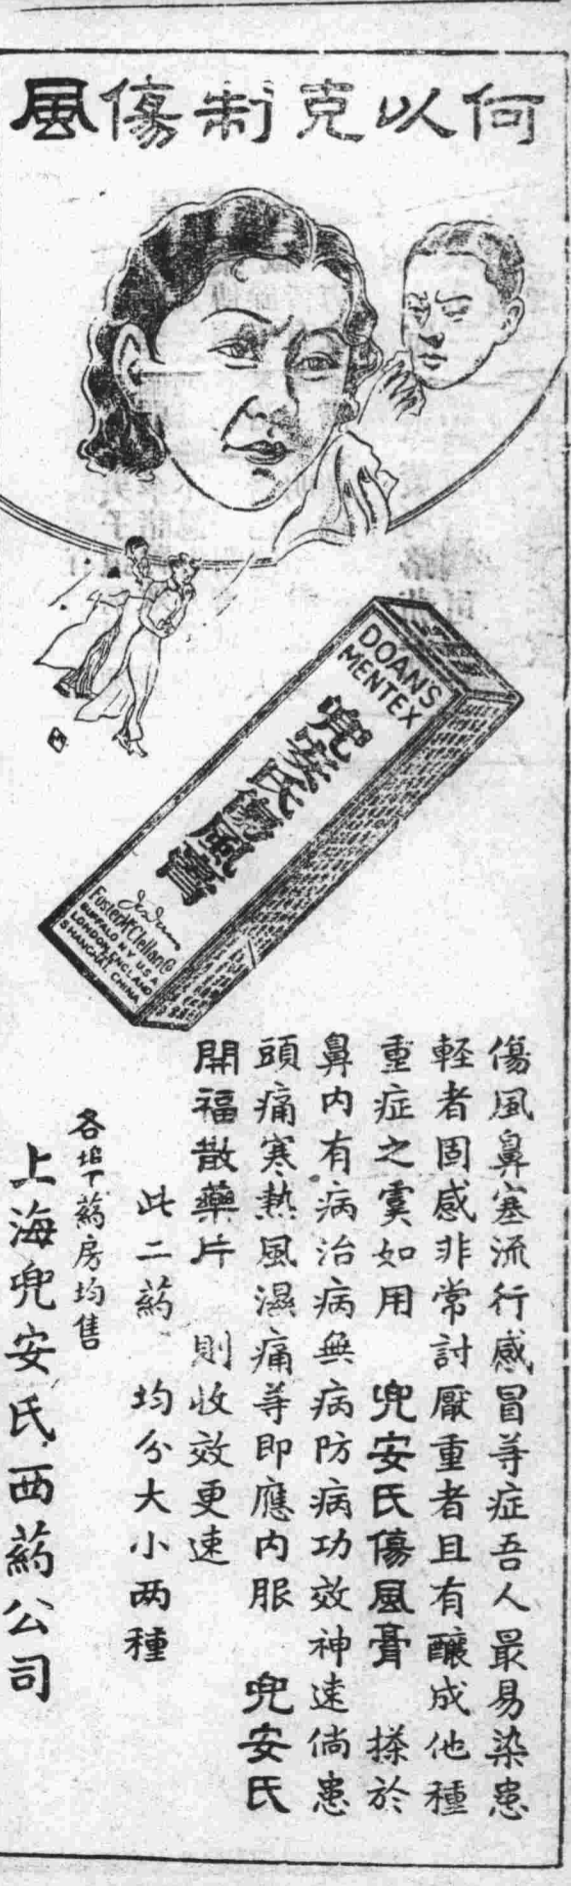 何以克制傷風
DOAN'S
MENTEX
兜安氏傷風膏
Foster McClellan Co
BUFFALO N.Y. U.S.A.
LONDON, ENGLAND
SHANGHAI, CHINA
傷風鼻塞流行感冒等症吾人最易染患
軽者固感非常討厭重者且有釀成他種
重症之虞如用 兜安氏傷風膏 搽於
鼻内有病治病無病防病功效神速倘患
頭痛寒熱風濕痛等即應内服 兜安氏
開福散藥片 則收效更速
此二药 均分大小两種
各埠药房均售
上海兜安氏西药公司